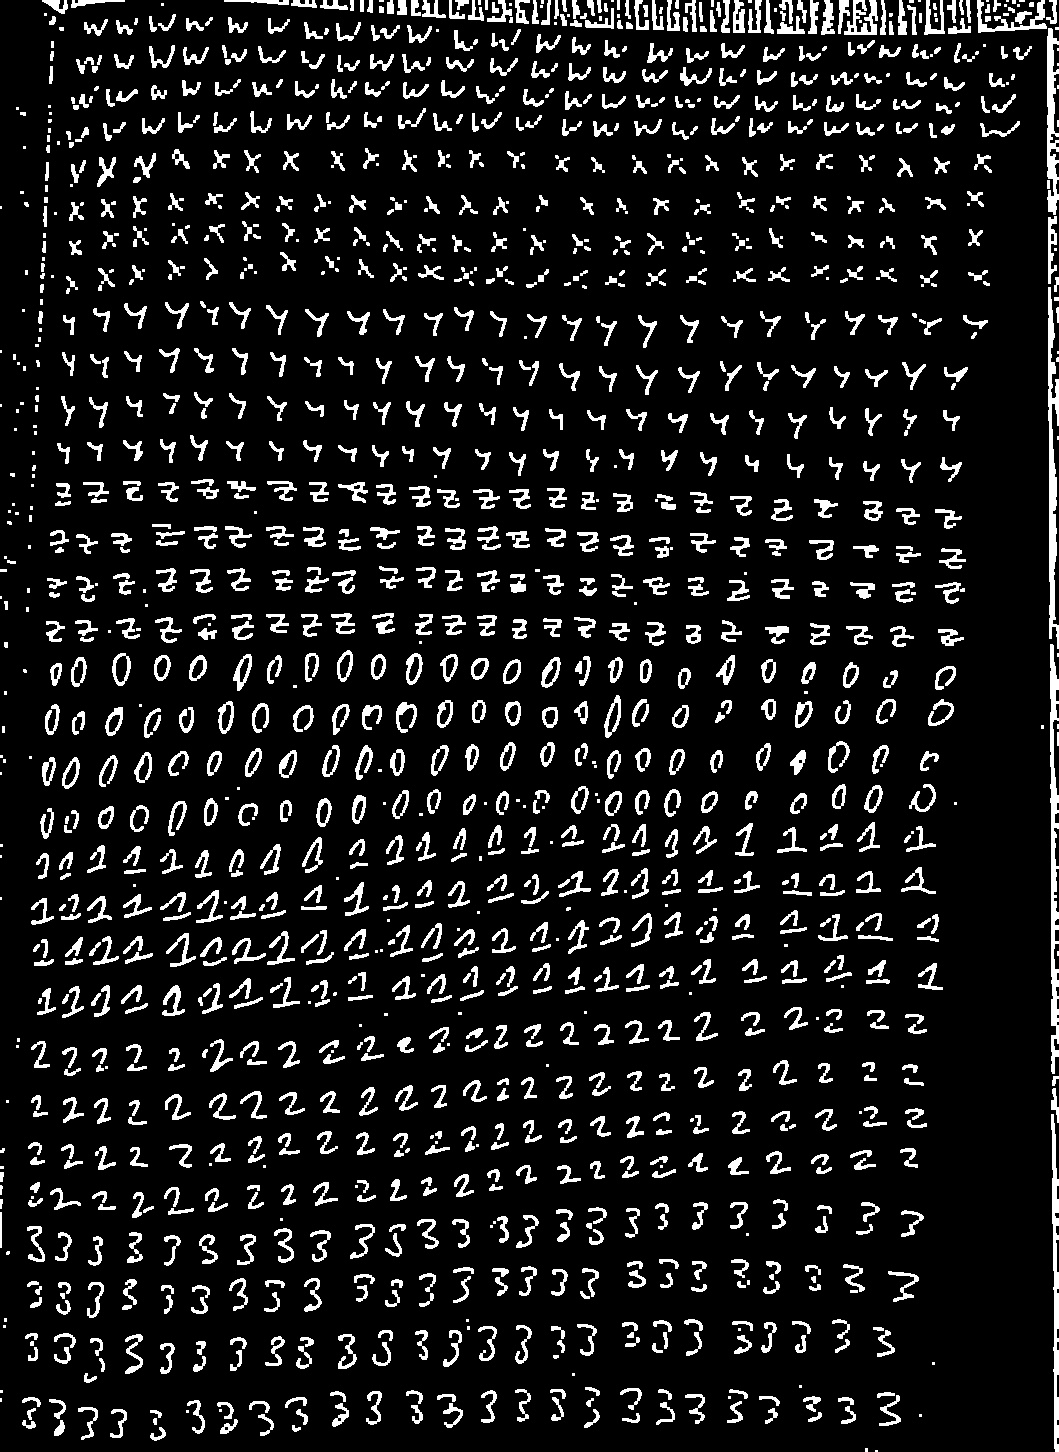 w w w w w w w w w w w w w w w w w w w w w w w w w
w w w w w w w w w w w w w w w w w w w w w w w w w
w w w w w w w w w w w w w w w w w w w w w w w w w
w w w w w w w w w w w w w w w w w w w w w w w w w
x x x x x x x x x x x x x x x x x x x x x x x x x
x x x x x x x x x x x x x x x x x x x x x x x x x
x x x x x x x x x x x x x x x x x x x x x x x x x
x x x x x x x x x x x x x x x x x x x x x x x x x
y y y y y y y y y y y y y y y y y y y y y y y y y
y y y y y y y y y y y y y y y y y y y y y y y y y
y y y y y y y y y y y y y y y y y y y y y y y y y
y y y y y y y y y y y y y y y y y y y y y y y y y
z z z z z z z z z z z z z z z z z z z z z z z z z
z z z z z z z z z z z z z z z z z z z z z z z z z
z z z z z z z z z z z z z z z z z z z z z z z z z
z z z z z z z z z z z z z z z z z z z z z z z z z
0 0 0 0 0 0 0 0 0 0 0 0 0 0 0 0 0 0 0 0 0 0 0 0 0
0 0 0 0 0 0 0 0 0 0 0 0 0 0 0 0 0 0 0 0 0 0 0 0 0
0 0 0 0 0 0 0 0 0 0 0 0 0 0 0 0 0 0 0 0 0 0 0 0 0
0 0 0 0 0 0 0 0 0 0 0 0 0 0 0 0 0 0 0 0 0 0 0 0 0
1 1 1 1 1 1 1 1 1 1 1 1 1 1 1 1 1 1 1 1 1 1 1 1 1
1 1 1 1 1 1 1 1 1 1 1 1 1 1 1 1 1 1 1 1 1 1 1 1 1
1 1 1 1 1 1 1 1 1 1 1 1 1 1 1 1 1 1 1 1 1 1 1 1 1
1 1 1 1 1 1 1 1 1 1 1 1 1 1 1 1 1 1 1 1 1 1 1 1 1
2 2 2 2 2 2 2 2 2 2 2 2 2 2 2 2 2 2 2 2 2 2 2 2 2
2 2 2 2 2 2 2 2 2 2 2 2 2 2 2 2 2 2 2 2 2 2 2 2 2
2 2 2 2 2 2 2 2 2 2 2 2 2 2 2 2 2 2 2 2 2 2 2 2 2
2 2 2 2 2 2 2 2 2 2 2 2 2 2 2 2 2 2 2 2 2 2 2 2 2
3 3 3 3 3 3 3 3 3 3 3 3 3 3 3 3 3 3 3 3 3 3 3 3 3
3 3 3 3 3 3 3 3 3 3 3 3 3 3 3 3 3 3 3 3 3 3 3 3 3
3 3 3 3 3 3 3 3 3 3 3 3 3 3 3 3 3 3 3 3 3 3 3 3 3
3 3 3 3 3 3 3 3 3 3 3 3 3 3 3 3 3 3 3 3 3 3 3 3 3